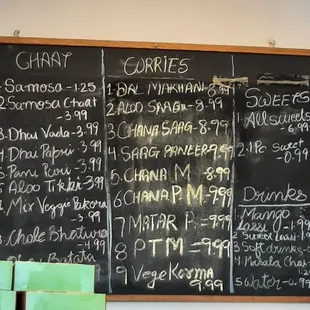 CHAAT
Samosa -1.25
2 Samosa Chaat
-3.99
3 Dhai Vada -3.99
4 Dhai Papri -3.99
5 Pani Puri -3.99
6 Aloo Tikki -3.99
4 Mix Veggie Pakora
-3.99
Chole Bhatura
-4.99
Batata
CURRIES
1 DAL MAKHANI -8.99
2 ALOO SAAG -8.99
3 CHANA SAAG -8.99
4 SAAG PANEER -9.99
5 CHANA M -8.99
6 CHANA P.M -9.99
7 MATAR P -9.99
8 PTM -9.99
9 Vege Korma
9.99
SWEETS
1 All sweets
-6.99
2 1 Pc sweet
-0.99
Drinks
Mango
Lassi -1.99
2 Sweet Lassi -1.99
3 Soft drinks
4 Masala Chai
-1.25
5 Water -0.99